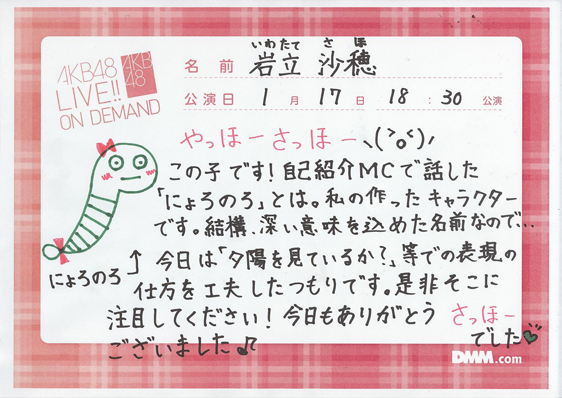 AKB48
LIVE!!
ON DEMAND
AKB
48
いわたて さほ
名前 岩立 沙穂
公演日 1月17日 18:30 公演
やっほーさっほー＼(^o^)／
この子です!自己紹介MCで話した
「にょろのろ」とは。私の作ったキャラクター
です。結構、深い意味を込めた名前なので…
にょろのろ
↑ 今日は「夕陽を見ているか?」等での表現の
仕方を工夫したつもりです。是非そこに
注目してください!今日もありがとう
ございました♪
さっほー
でした♡
DMM.com